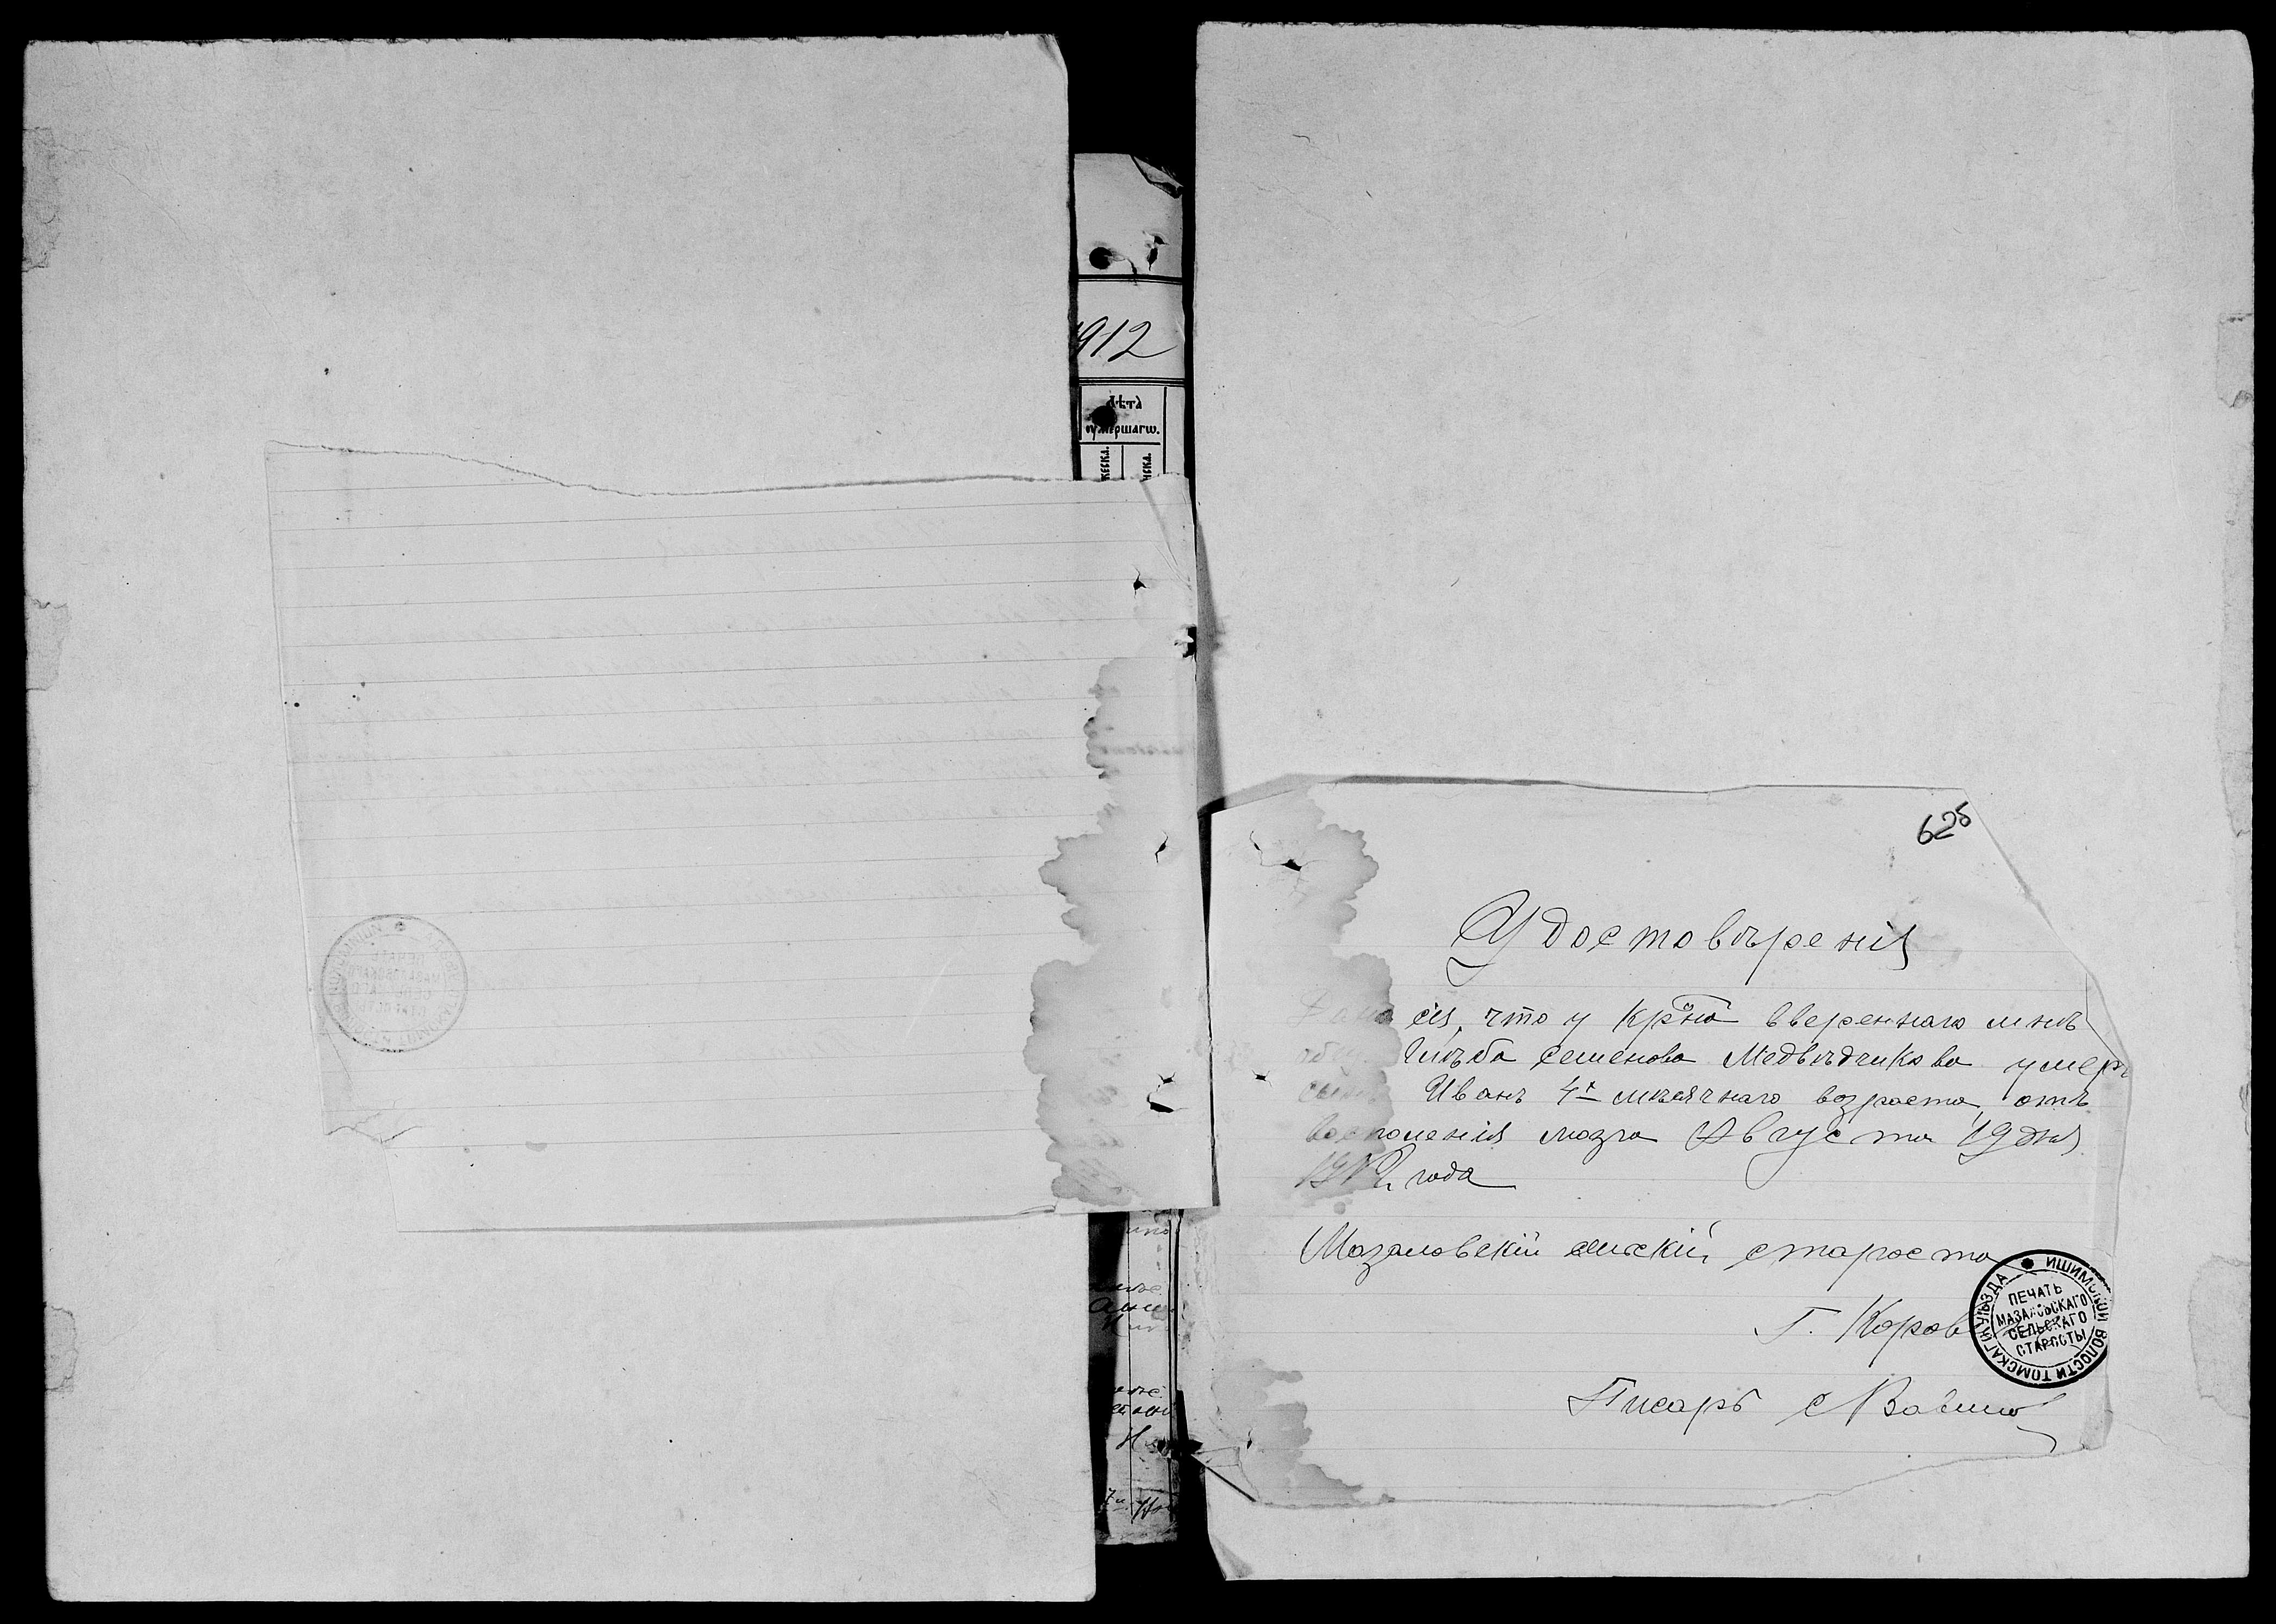 912
лѣта
умершагω.
625
Удостовѣренія
Дана сія, что у кр-на ввереннаго мнѣ
Глѣба Семенова Медвѣдчикова умеръ
сынъ Иванъ 4х мѣсячнаго возраста, отъ
воспоменія мозга Августа 19 дня
1912 года
Мазаловскій сельскій староста
Г. Коров
ПЕЧАТЬ
МАЗАЛОВСКАГО
СЕЛЬСКАГО
СТАРОСТЫ
ИШИМСКОЙ ВОЛОСТИ ТОМСКАГО УѢЗДА
Писарь